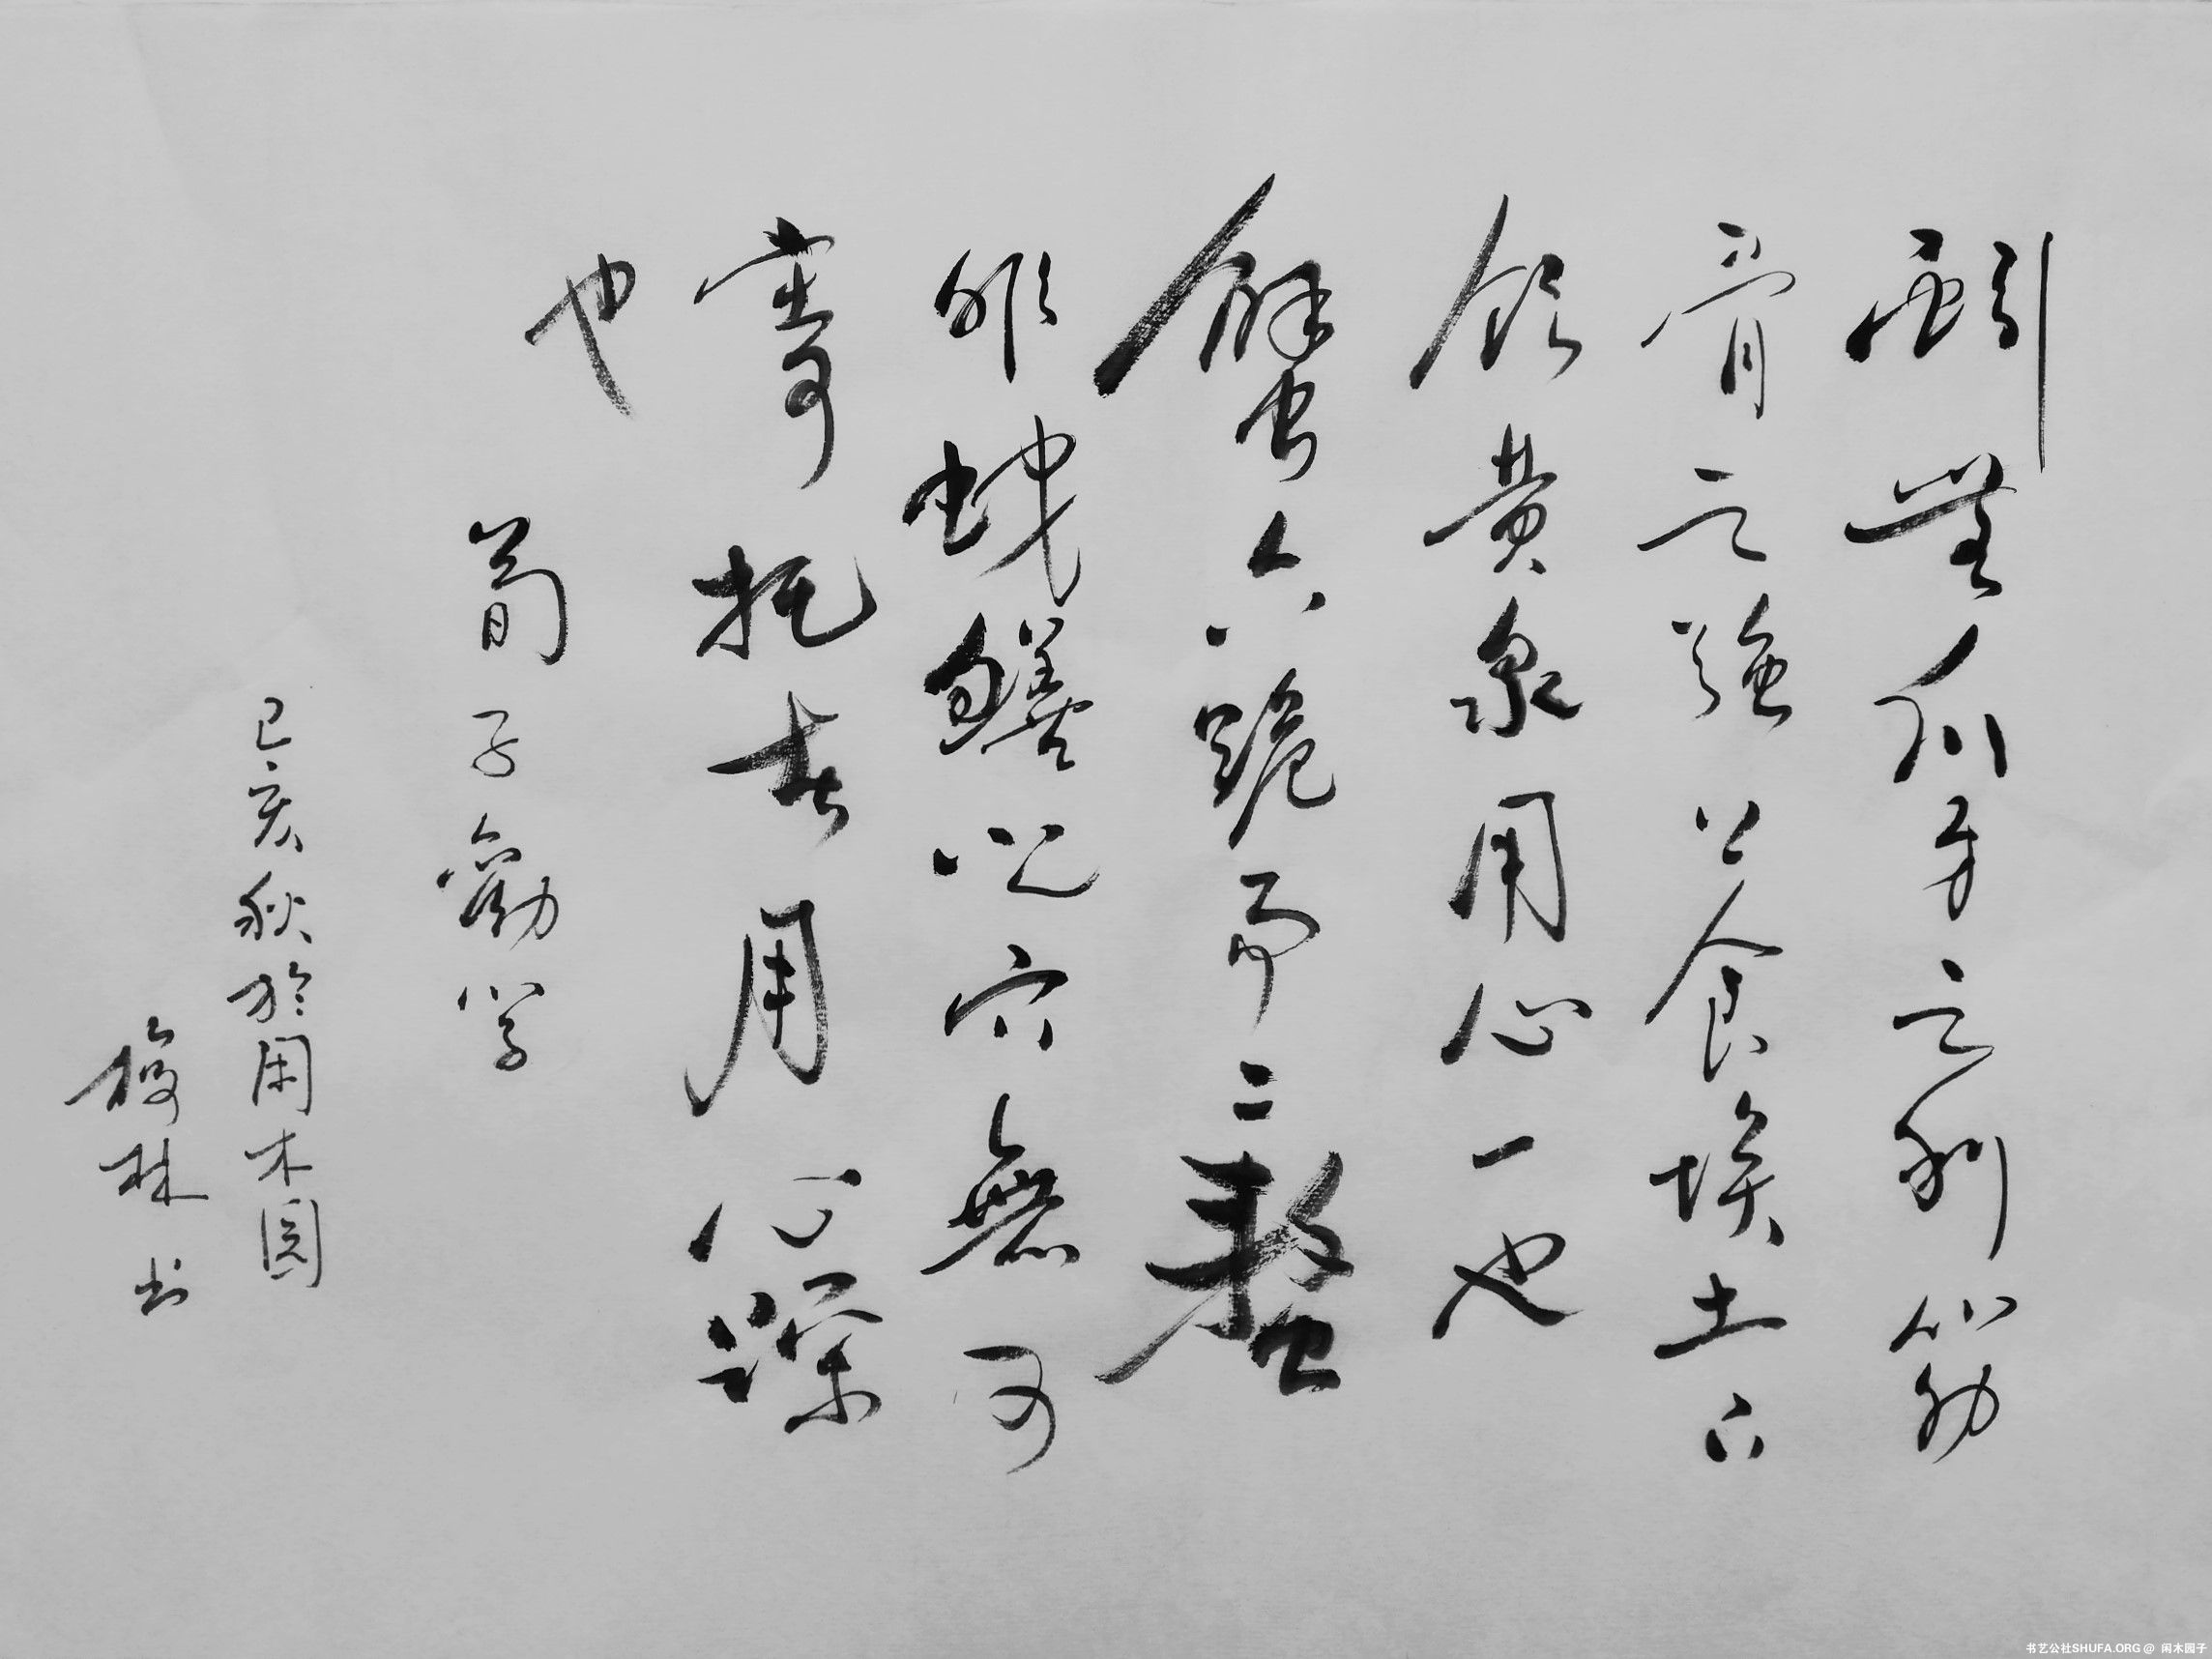 蚓無爪牙之利筋
骨之強上食埃土下
飲黃泉用心一也
蟹六跪而二螯
非蛇蟮之穴無可
寄托者用心躁
也
荀子勸学
己亥秋於閑木园
梅林书
书艺公社SHUFA.ORG @ 闲木园子